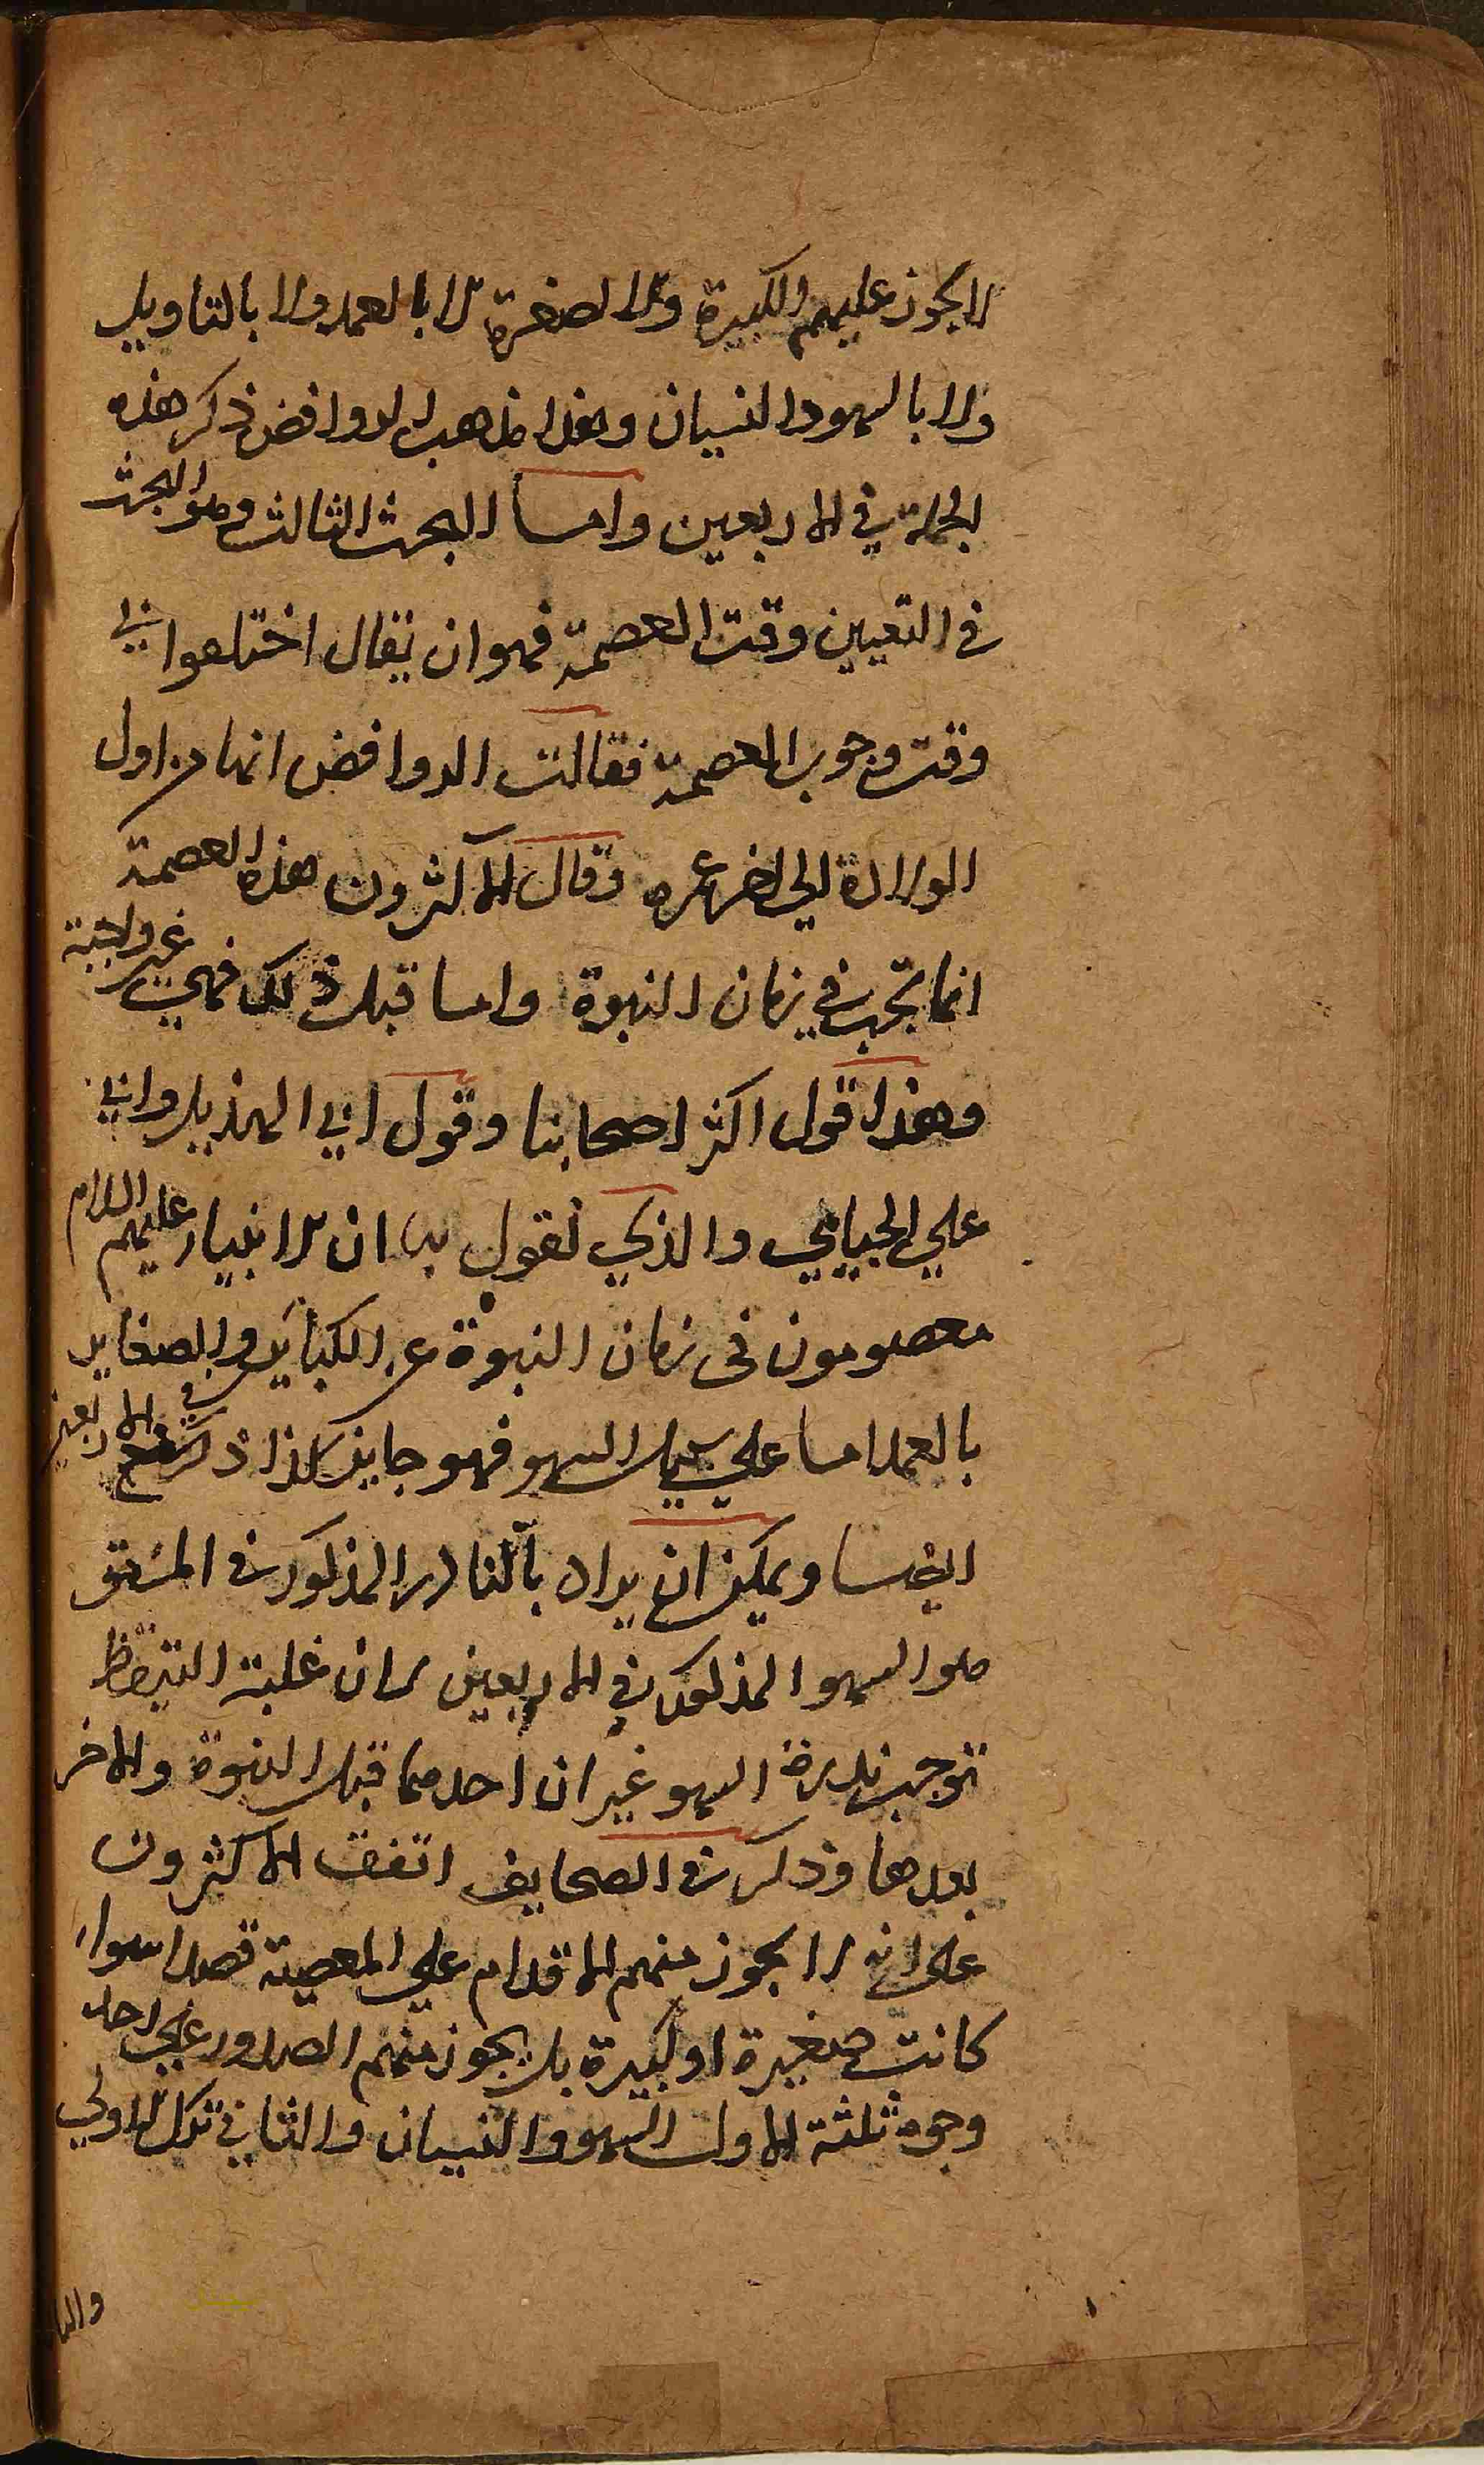 لا يجوز عليهم الكبيرة ولا الصغيرة لا بالعمد ولا بالتاويل
ولا بالسهو والنسيان وهذا مذهب الروافض ذكر هذه
الجملة في الاربعين واما البحث الثالث وهو البحث
في التعيين وقت العصمة فهو ان يقال اختلفوا في
وقت وجوب العصمة فقالت الروافض انها من اول
الولادة الي اخر عمره وقال الاكثرون هذه العصمة
انما تجب في زمان النبوة واما قبل ذلك فهي غير واجبة
وهذا قول اكثر اصحابنا وقول ابي الهذيل وابي
علي الجبايي والذي نقول به ان الانبياء عليهم السلام
معصومون في زمان النبوة عن الكبائر والصغاير
بالعمد اما علي سبيل السهو فهو جايز كذا ذكر في الاربعين
ايضا ويمكن ان يراد بالنادر المذكور في
هو السهو المذكور في الاربعين لان غلبة التيقظ
توجب ندرة السهو غير ان احدهما قبل النبوة والاخر
بعدها وذكر في الصحايف اتفق الاكثرون
على انه لا يجوز منهم الاقدام علي المعصية قصدا سواء
كانت صغيرة او كبيرة بل يجوز منهم الصدور علي احد
وجوه ثلثة الاول السهو والنسيان والثاني ترك الاولي